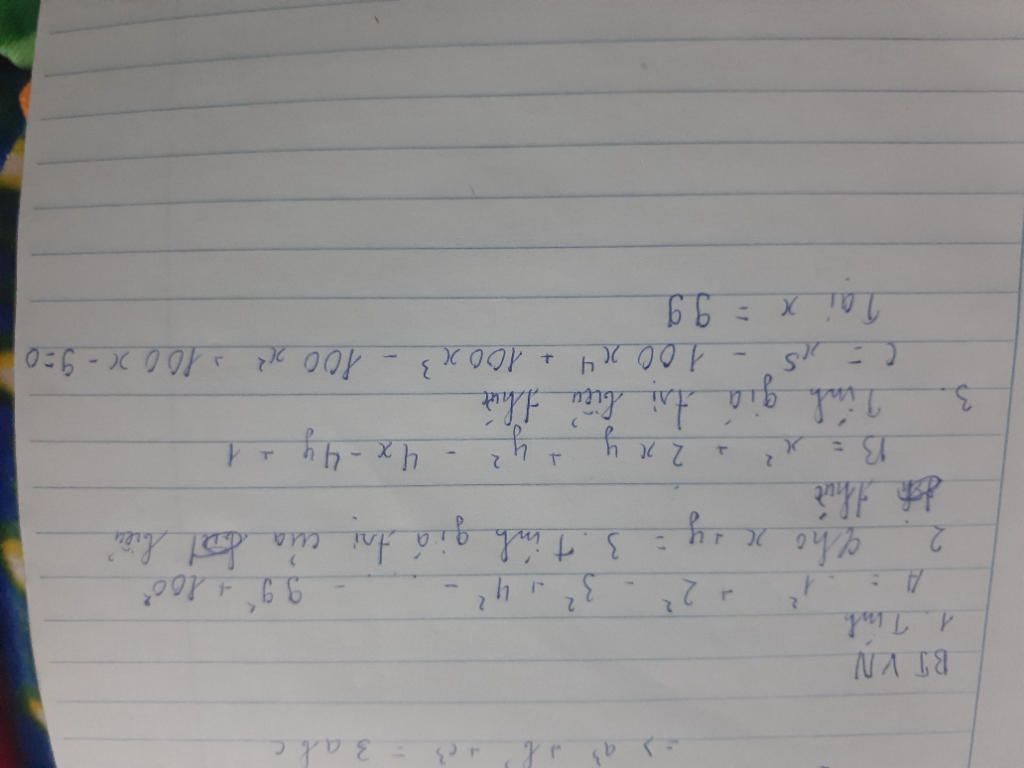 => a³ + b³ + c³ = 3abc
BTVN
1. Tính
A = 1² + 2² - 3² + 4² - ... - 99² + 100²
2. Cho x + y = 3. Tính giá trị của biểu
thức
B = x² + 2xy + y² - 4x - 4y + 1
3. Tính giá trị biểu thức
C = x⁵ - 100x⁴ + 100x³ - 100x² + 100x - 9=0
Tại x = 99